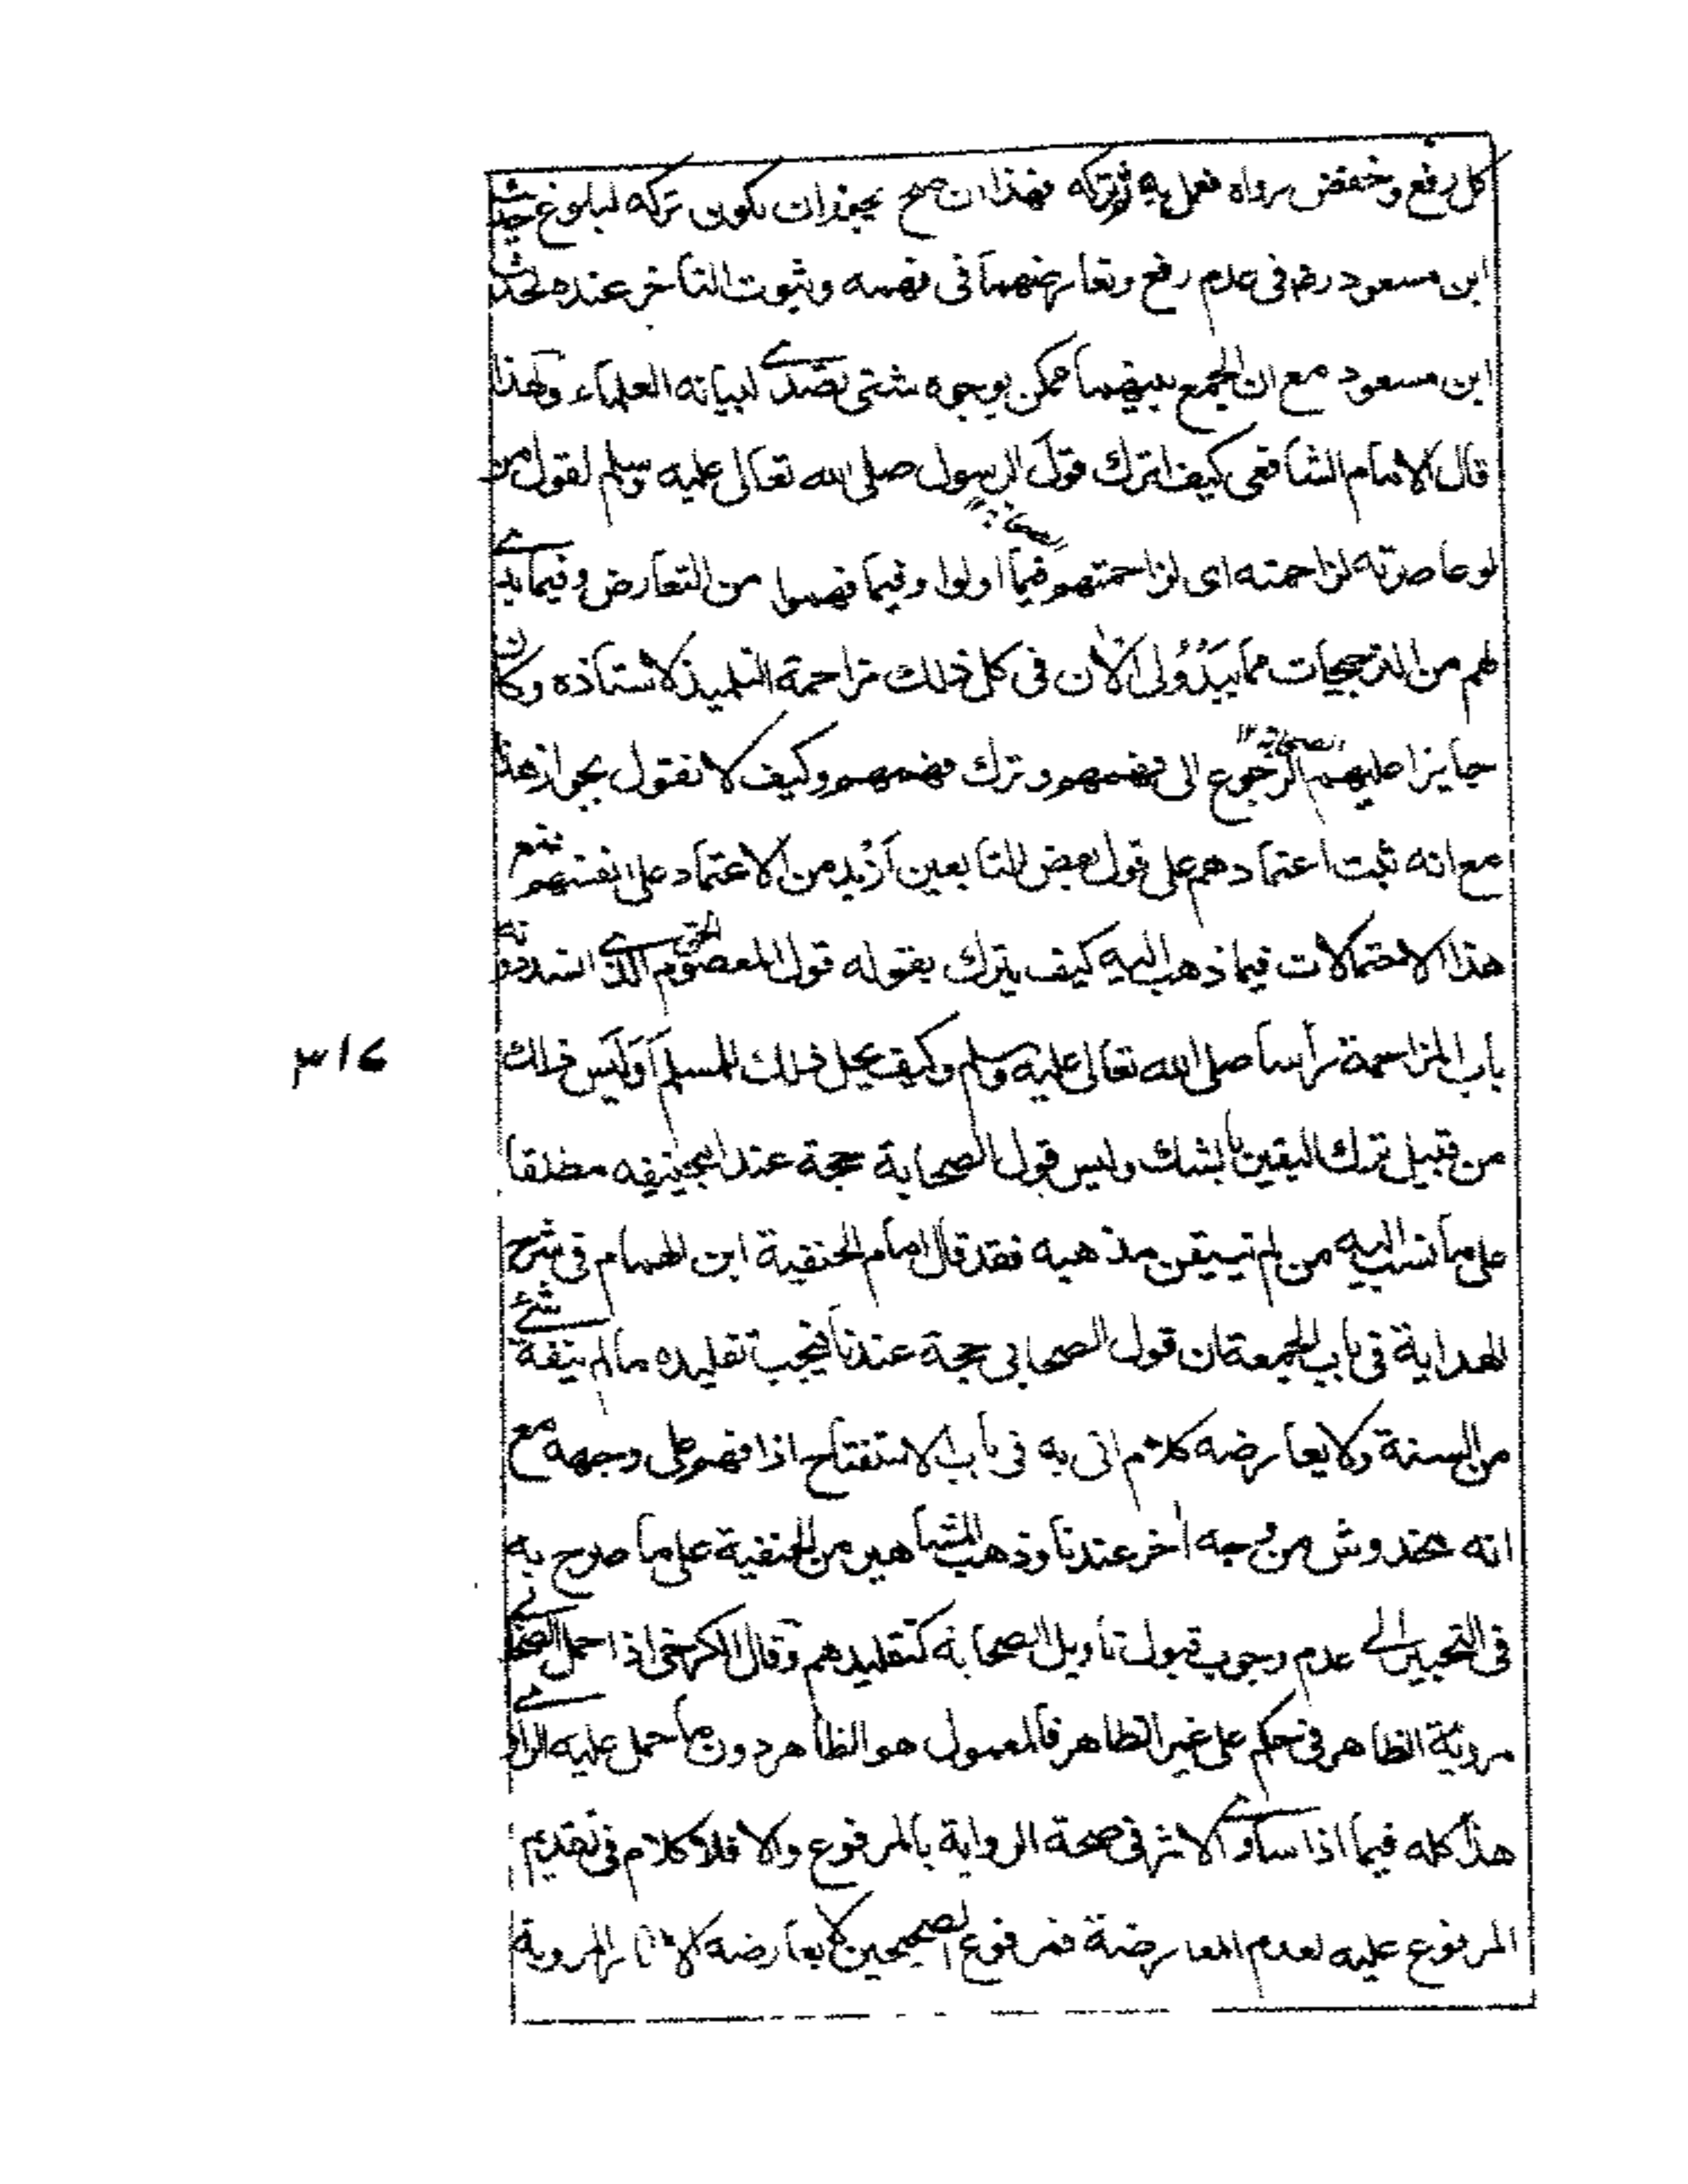 كل رفع وخفض رواه فعل به ثم تركه فهذا ان صح يجوز ان يكون تركه لبلوغ حديث
ابن مسعود رض فى عدم رفع وتعارضهما فى فهمه وثبوت التأخر عنده لحديث
ابن مسعود مع ان الجمع بينهما ممكن بوجوه شتى تصدى لبيانه العلماء ولهذا
قال الامام الشافعى كيف اترك قول الرسول صلى الله تعالى عليه وسلم لقول من
لو عاصرته لزاحمته اى لزاحمتهم فيما اولوا وفيما فهموا من التعارض وفيما يبدى
لهم من الترجيحات مما يبدو لى الآن فى كل ذلك مزاحمة التلميذ لاستاذه وكان
جايزا عليهم الرجوع الى فهمهم وترك فهمهم وكيف لا نقول بجواز هذا
الصحابة ١٢
مع انه ثبت اعتمادهم على قول بعض التابعين أزيد من الاعتماد على انفسهم فمع
هذا الاحتمالات فيما ذهب اليه كيف يترك بقوله قول المعصوم الذى انسد دونه
باب المزاحمة رأسا صلى الله تعالى عليه وسلم وكيف يحل ذلك للمسلم أوليس ذلك
٣١٦
من قبيل ترك اليقين بالشك وليس قول الصحابة حجة عند ابيحنيفه مطلقا
على ما نسب اليه من لم تيقن مذهبه فقد قال امام الحنفية ابن الهمام فى شرح
الهداية فى باب الجمعة ان قول الصحابى حجة عندنا فيجب تقليده ما لم ينفه شئ
من السنة ولا يعارضه كلام اتى به فى باب الاستفتاح اذا فهم على وجهه مع
انه مخدوش من وجه آخر عندنا وذهب المشاهير من الحنفية على ما صرح به
فى التحرير الى عدم وجوب قبول تأويل الصحابة كتقليدهم وقال الكرخى اذا حمل الصحابى
مرويه الظاهر فى حكم على غير الظاهر فالمعمول هو الظاهر دون ما حمل عليه الراوى
هذا كله فيما اذا ساوى الاثر فى صحة الرواية بالمرفوع والا فلا كلام فى تقديم
المرفوع عليه لعدم المعارضة فمرفوع الصحيحين لا يعارضه الآثار المروية